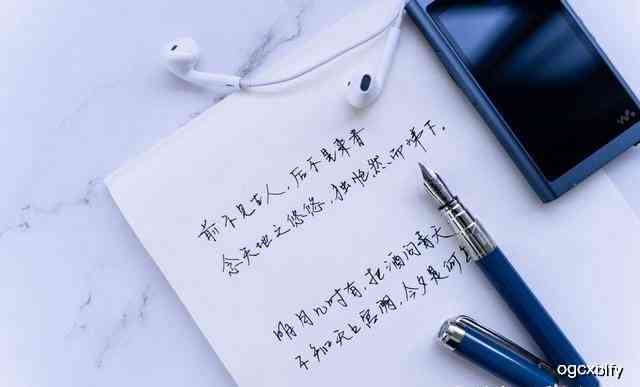 前不见古人,后不见来者
念天地之悠悠,独怆然而涕下。
明月几时有,把酒问青天
不知天上宫阙,今夕是何
ogcxblfy